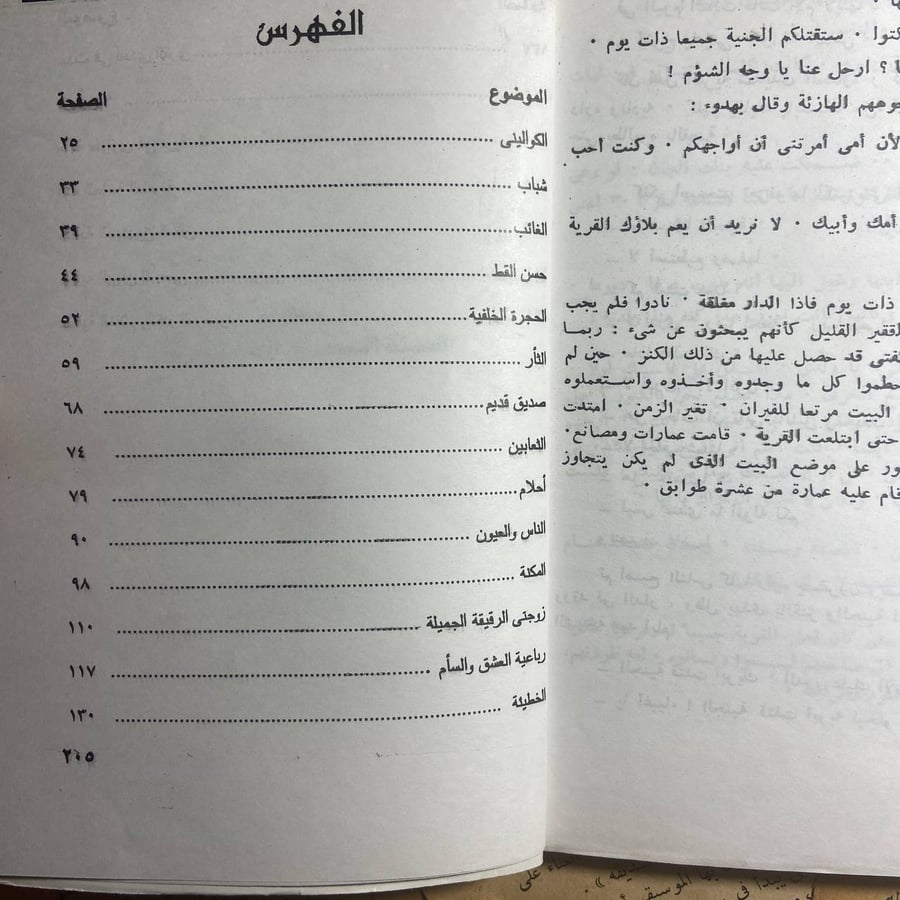 كتوا ٠ ستقتلكم الجنية جميعا ذات يوم ٠
ا ؟ ارحل عنا يا وجه الشؤم !
جوههم الهازئة وقال بهدوء :
لأن أمى أمرتنى أن أواجهكم ٠ وكنت أحب
أمك وأبيك ٠ لا نريد أن يعم بلاؤك القرية
ذات يوم فاذا الدار مغلقة ٠ نادوا فلم يجب
لفقير القليل كأنهم يبحثون عن شىء : ربما
لفتى قد حصل عليها من ذلك الكنز ٠ حين لم
حطموا كل ما وجدوه وأخذوه واستعملوه
البيت مرتعا للفيران ٠ تغير الزمن ٠ امتدت
حتى ابتلعت القرية ٠ قامت عمارات ومصانع ٠
ور على موضع البيت الذى لم يكن يتجاوز
قام عليه عمارة من عشرة طوابق ٠
الفهرس
الموضوع الصفحة
الكوالينى ٢٥
شباب ٣٣
الغائب ٣٩
حسن القط ٤٤
الحجرة الخلفية ٥٢
الثأر ٥٩
صديق قديم ٦٨
الثعابين ٧٤
أحلام ٧٩
الناس والعيون ٩٠
المكنة ٩٨
زوجتى الرقيقة الجميلة ١١٠
رباعية العشق والسأم ١١٧
الخطيئة ١٣٠
٢٠٥